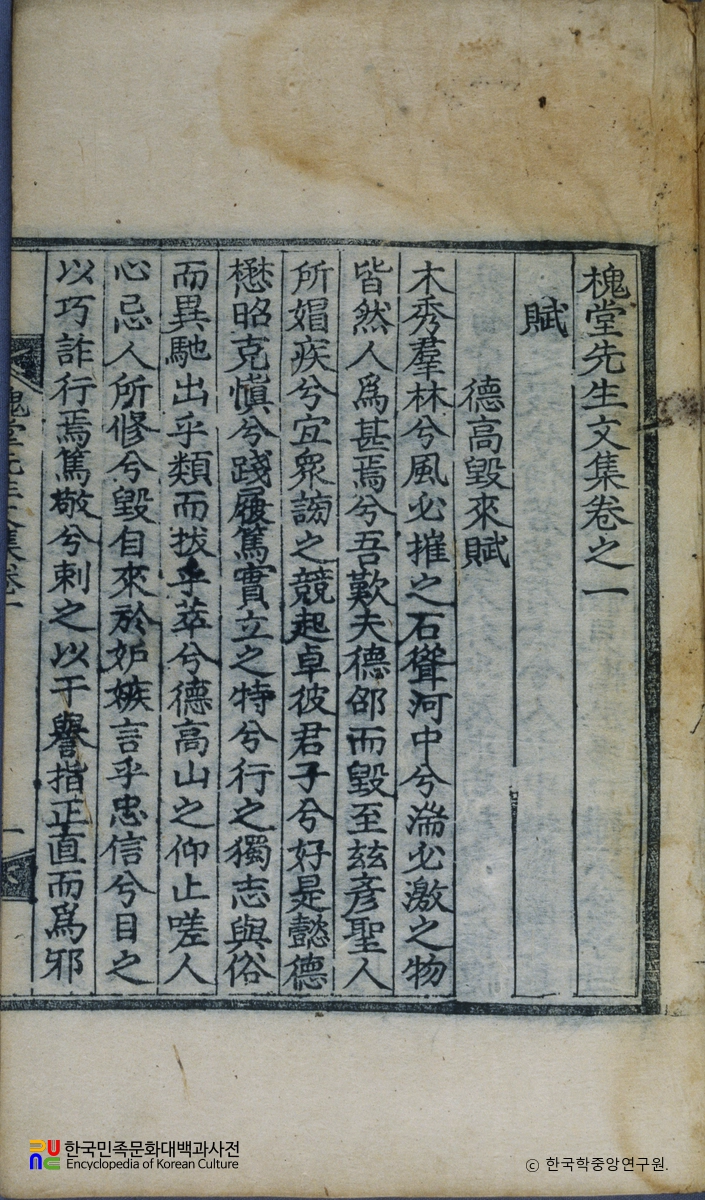 槐堂先生文集卷之一
賦
德高毀來賦
木秀羣林兮風必摧之石聳河中兮湍必激之物
皆然人爲甚焉兮吾歎夫德卲而毀至玆彥聖人
所媢疾兮宜衆謗之競起卓彼君子兮好是懿德
懋昭克愼兮踐履篤實立之特兮行之獨志與俗
而異馳出乎類而拔乎萃兮德高山之仰止嗟人
心忌人所修兮毀自來於妒嫉言乎忠信兮目之
以巧詐行焉篤敬兮刺之以干譽指正直而爲邪
槐堂先生文集卷一
一
한국민족문화대백과사전
Encyclopedia of Korean Culture
© 한국학중앙연구원.